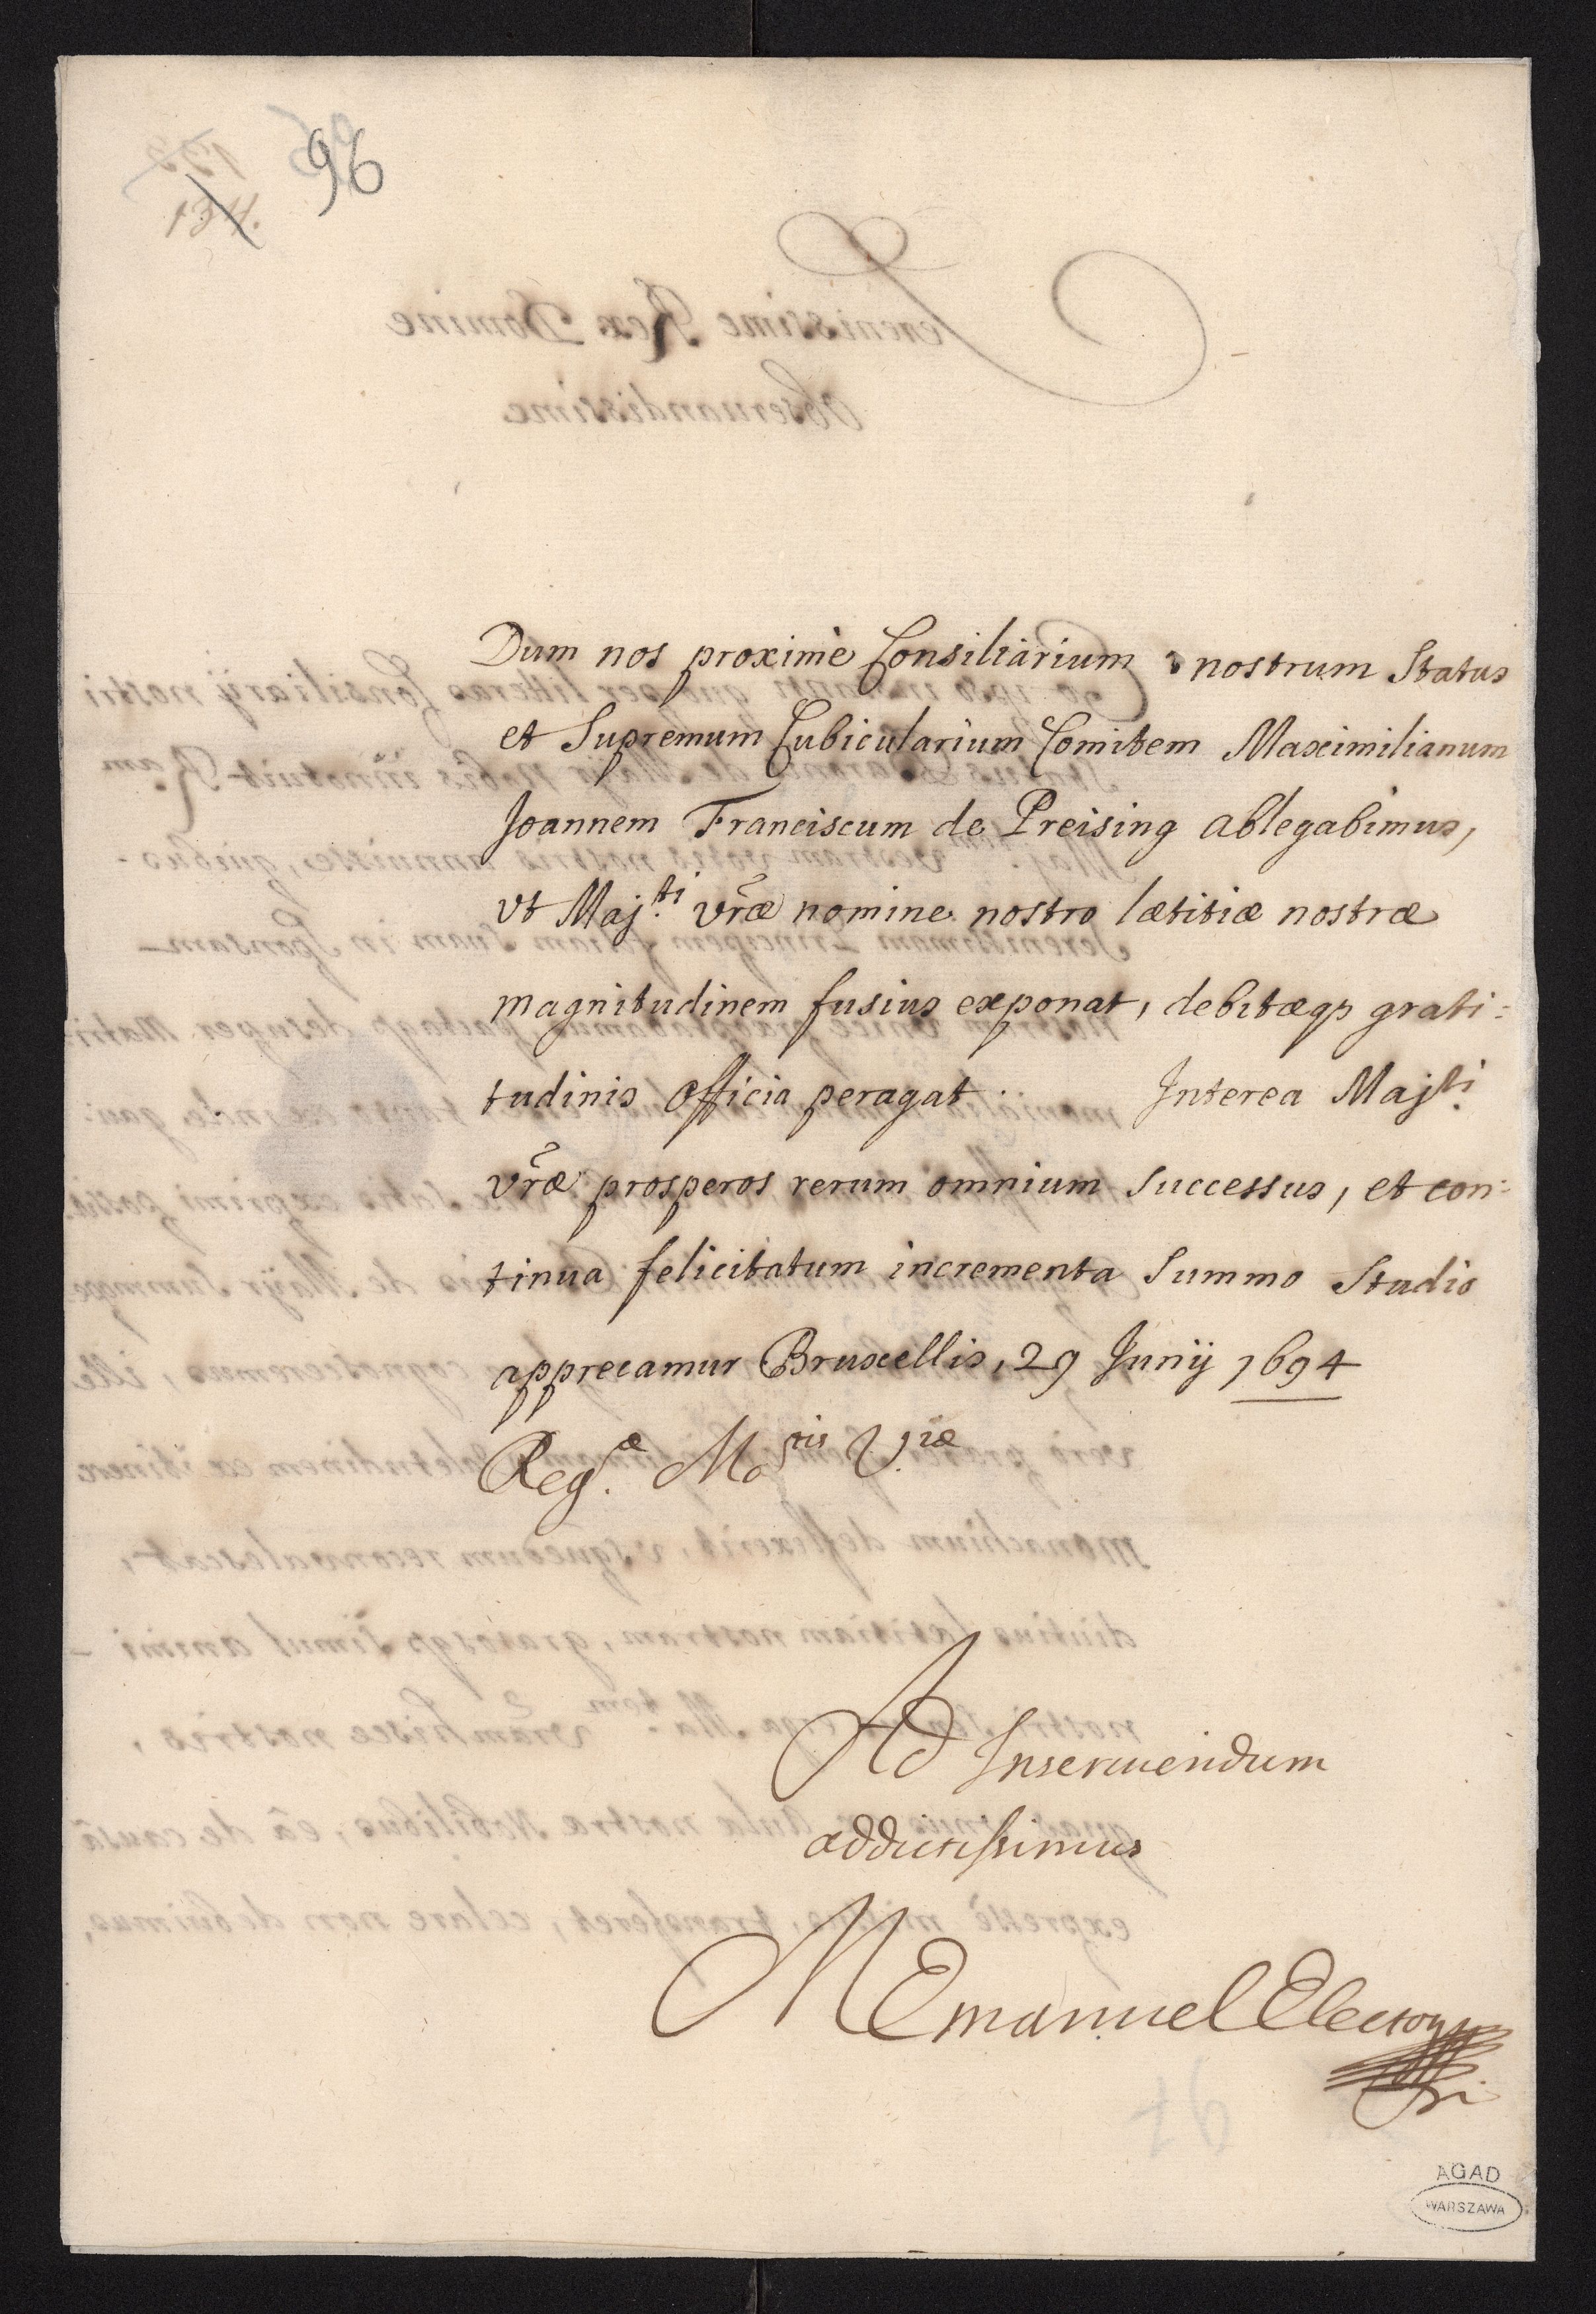 96
134.
Dum nos proximè Consiliarium nostrum Status
et Supremum Cubicularium Comitem Maximilianum
Joannem Franciscum de Preising ablegabimus,
vt Maj.ti vr̃æ nomine nostro lætitiæ nostræ
magnitudinem fusius exponat, debitæqꝫ grati:
tudinis officia peragat. Interea Maj.ti
vr̃æ prosperos rerum omnium Successus, et con:
tinua felicitatum incrementa Summo Studio
apprecamur Bruxellis, 29 Junij 1694
Reg.æ M.tis V.ræ
Ad Inseruiendum
addictissimus
MEmanuel Elector
AGAD
WARSZAWA